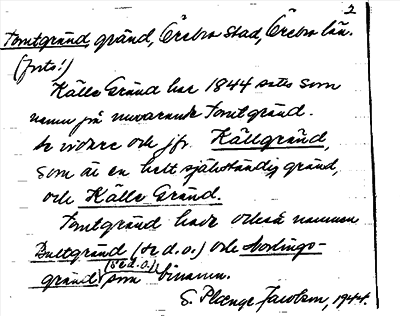 2
Tomtgränd, gränd, Örebro stad, Örebro län.
(forts!)
Källe Gränd har 1844 satts som
namn på nuvarande Tomtgränd.
Se vidare och jfr. Källgränd,
som är en helt självständig gränd,
och Källe Gränd.
Tomtgränd hade också namnen
Bultgränd (se d.o.) och
gränd (se d.o.) som binamn.
S. Plænge Jacobson, 1944.